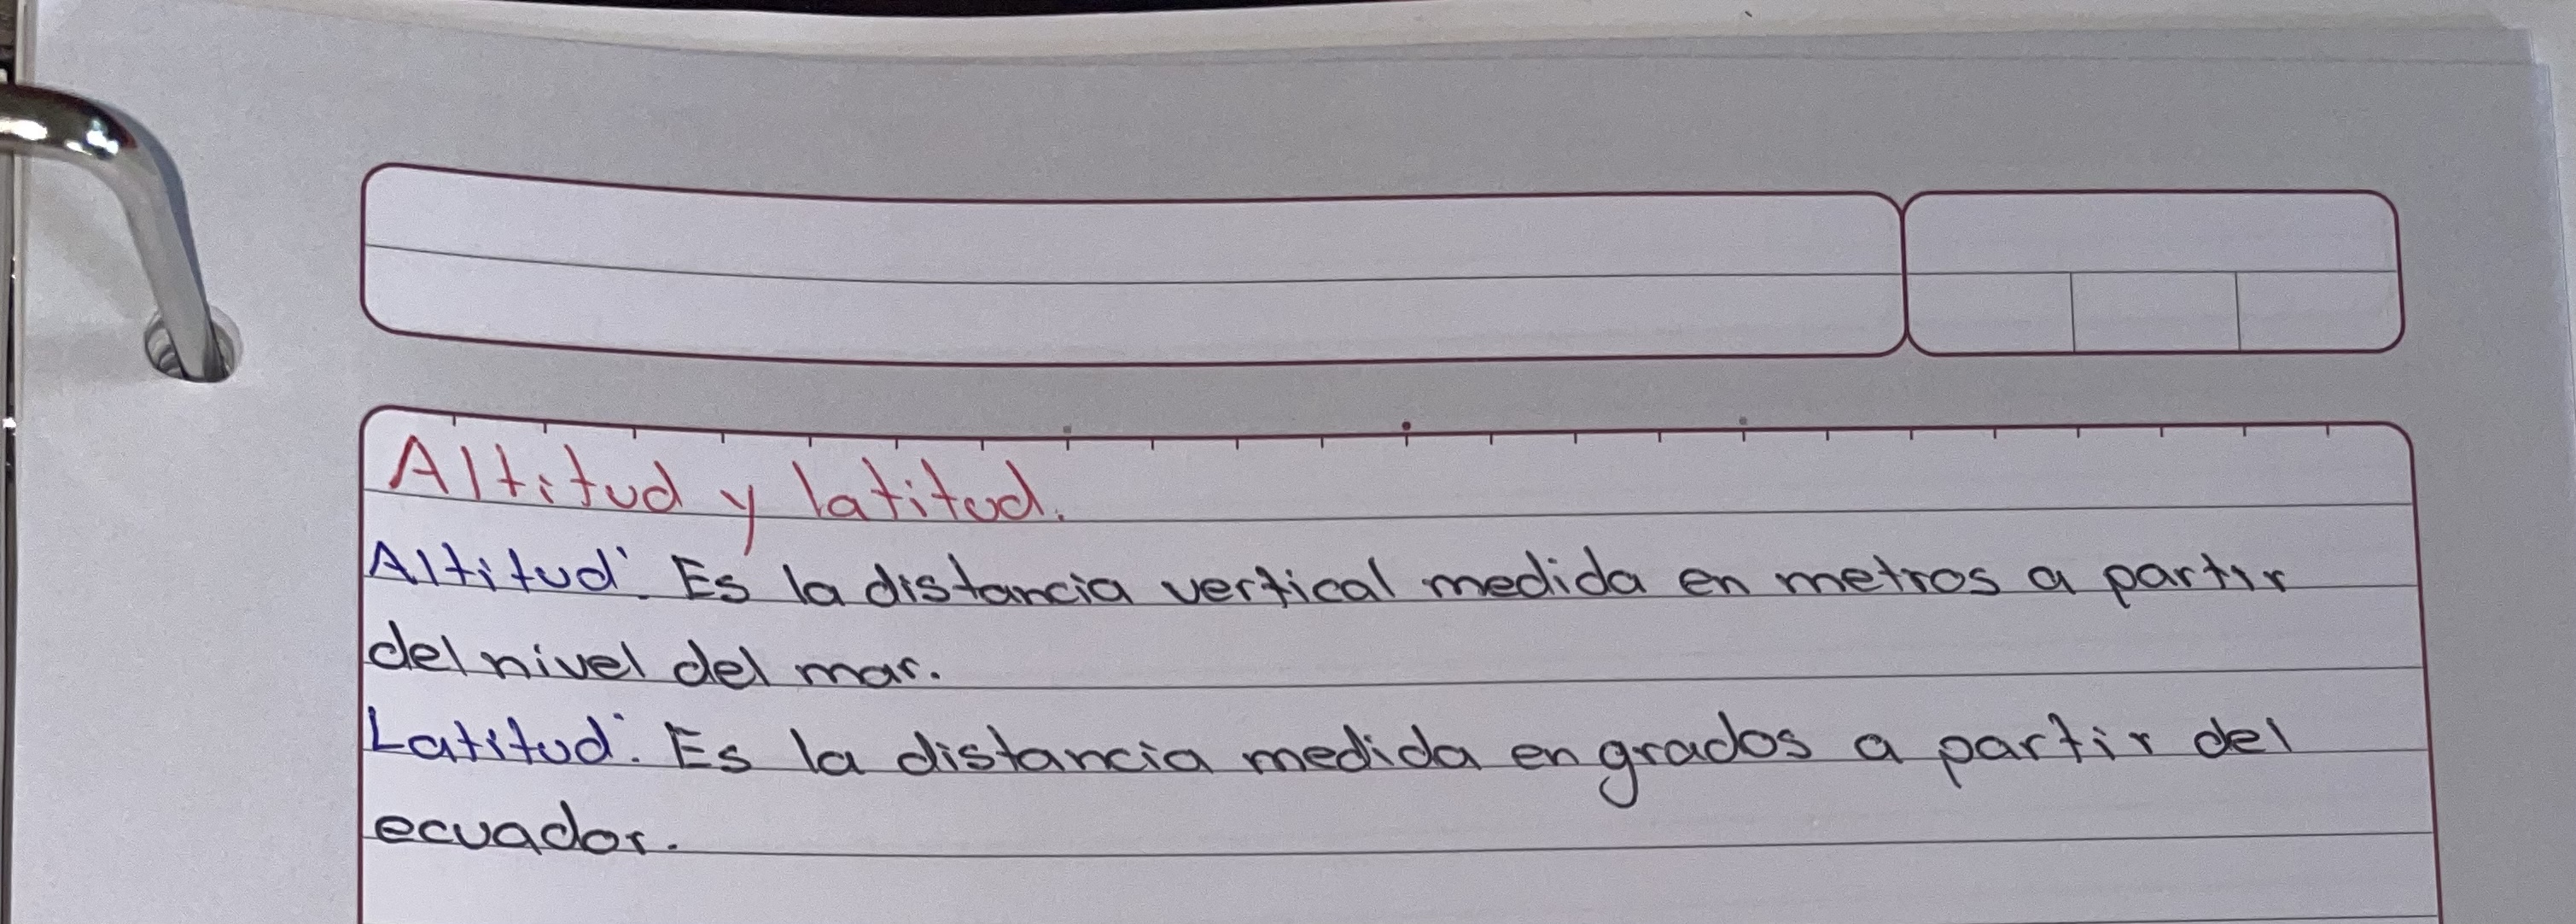 Altitud y latitud.
Altitud: Es la distancia vertical medida en metros a partir
del nivel del mar.
Latitud: Es la distancia medida en grados a partir del
ecuador.